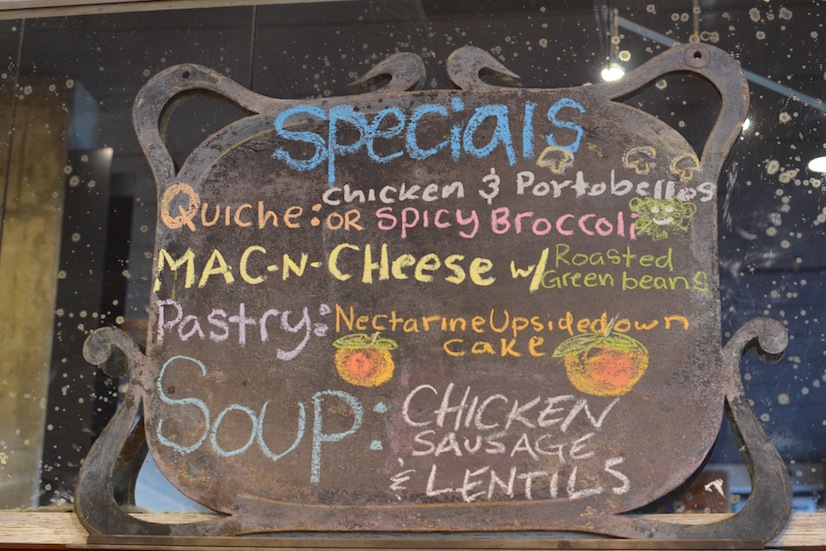 Specials
Chicken & Portobellos
Quiche: OR Spicy Broccoli
MAC-N-CHeese w/ Roasted
Green beans
Pastry: Nectarine Upsidedown
cake
Soup: CHICKEN
SAUSAGE
& LENTILS